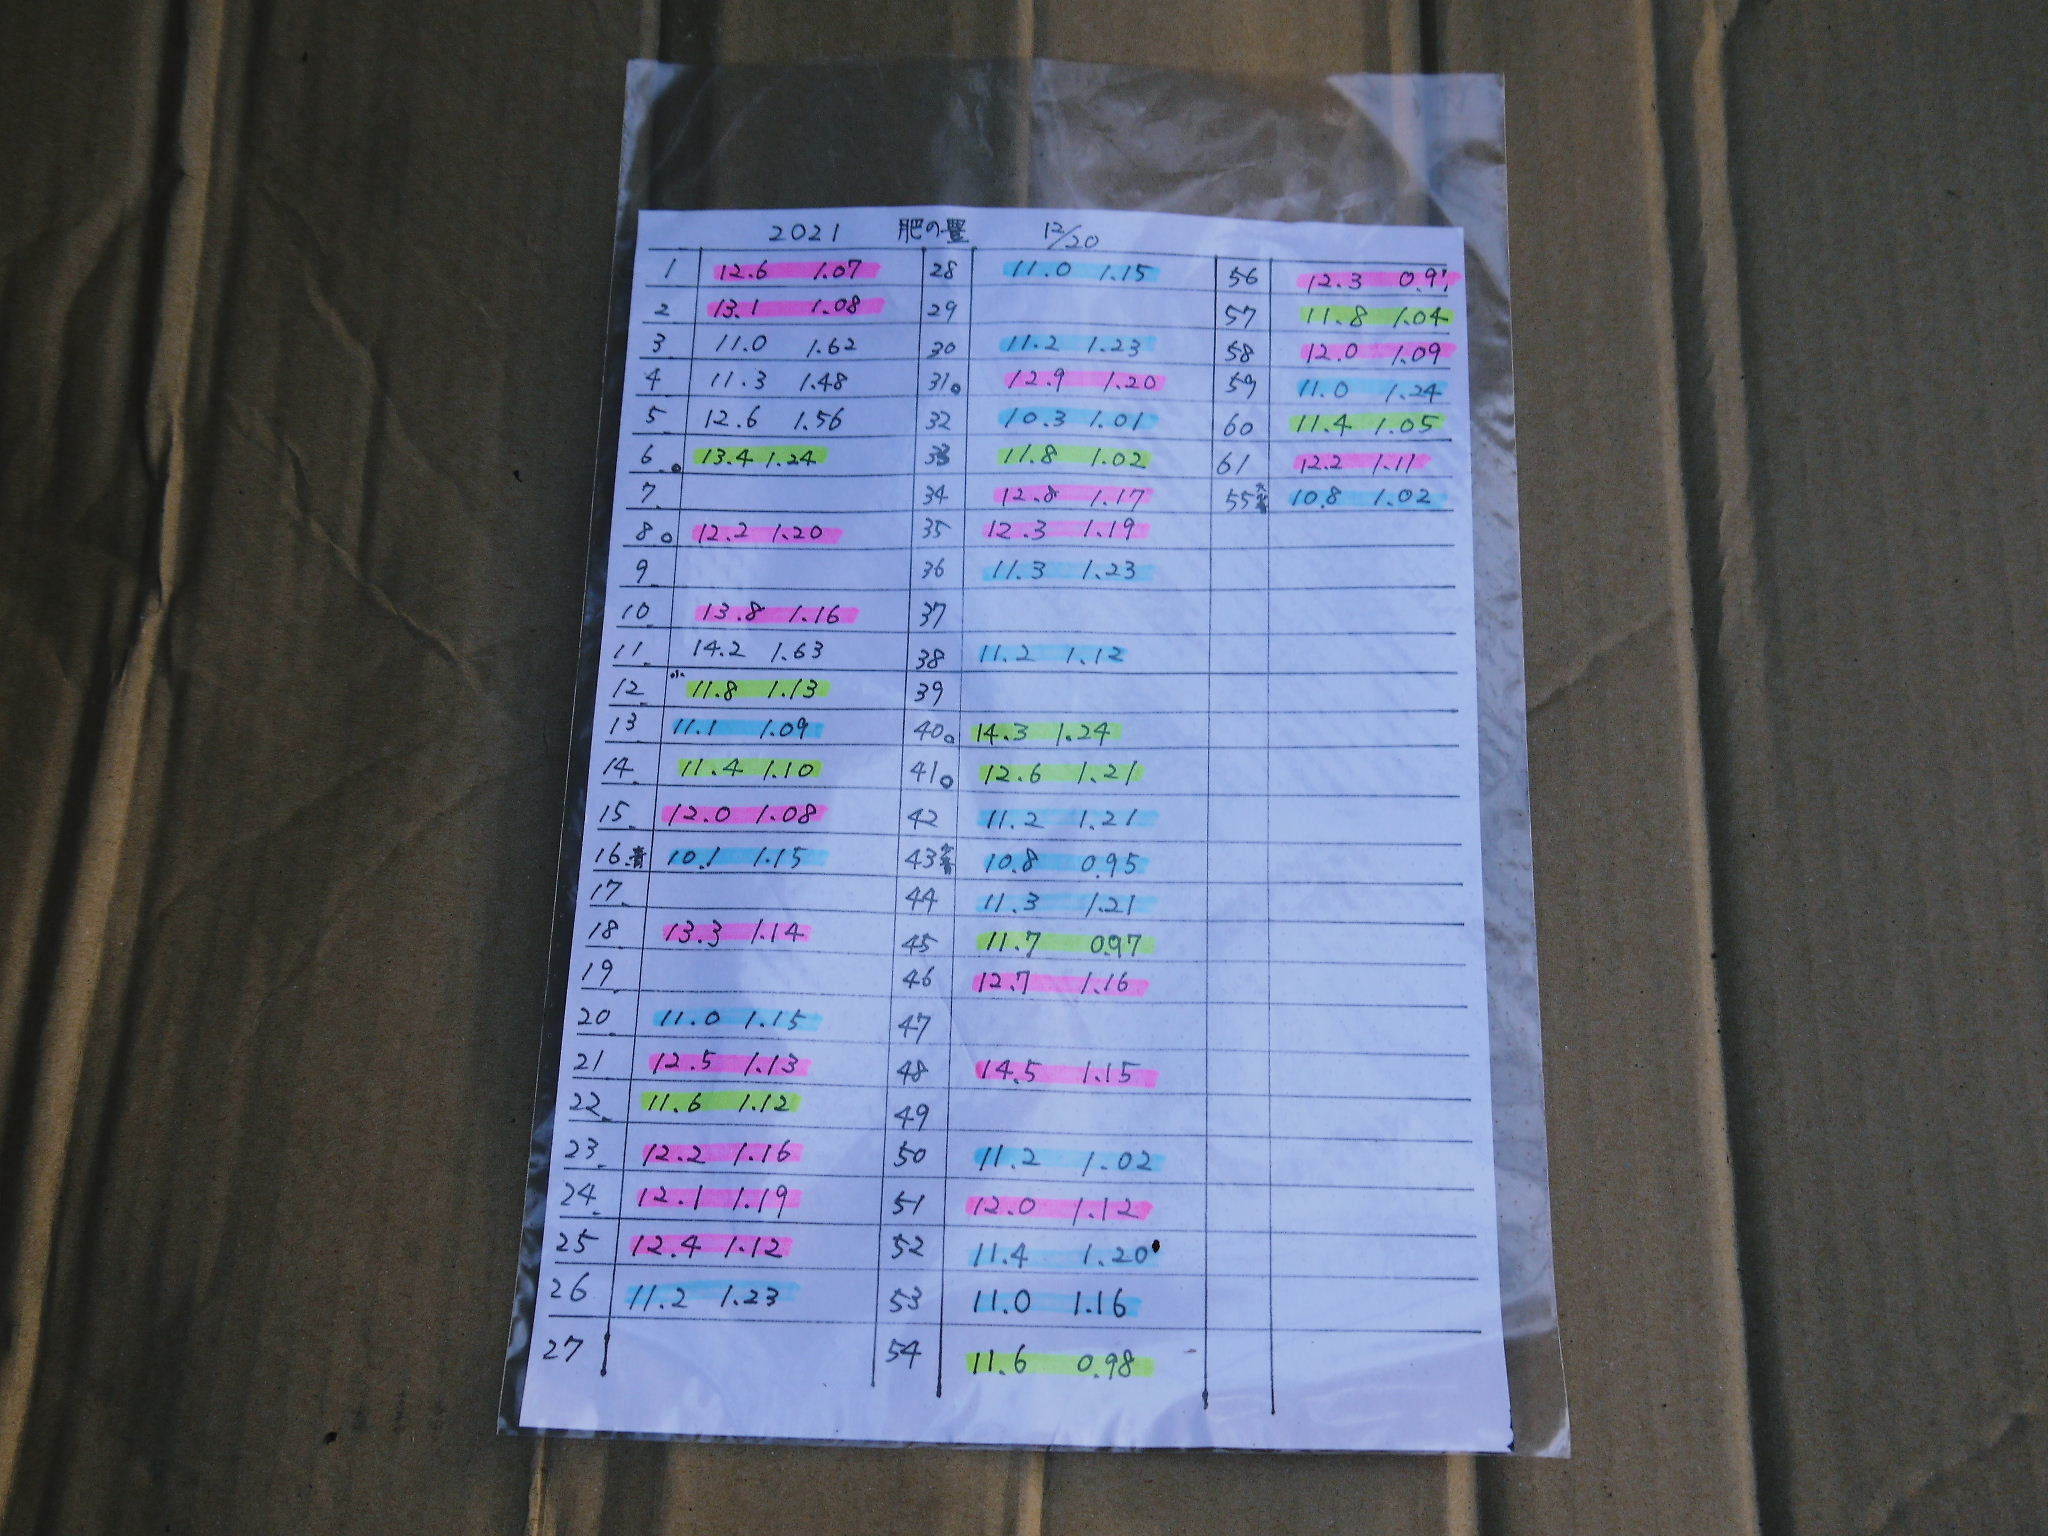 2021 肥の豊 12/20
1 12.6 1.07 28 11.0 1.15 56 12.3 0.9
2 13.1 1.08 29 57 11.8 1.04
3 11.0 1.62 30 11.2 1.23 58 12.0 1.09
4 11.3 1.48 31。 12.9 1.20 59 11.0 1.24
5 12.6 1.56 32 10.3 1.01 60 11.4 1.05
6.。 13.4 1.24 33 11.8 1.02 61 12.2 1.11
7. 34 12.8 1.17 55 10.8 1.02
8。 12.2 1.20 35 12.3 1.19
9. 36 11.3 1.23
10. 13.8 1.16 37
11. 14.2 1.63 38 11.2 1.12
12. 小 11.8 1.13 39
13. 11.1 1.09 40。 14.3 1.24
14. 11.4 1.10 41。 12.6 1.21
15. 12.0 1.08 42 11.2 1.21
16.青 10.1 1.15 43 10.8 0.95
17. 44 11.3 1.21
18. 13.3 1.14 45 11.7 0.97
19. 46 12.7 1.16
20. 11.0 1.15 47
21. 12.5 1.13 48 14.5 1.15
22. 11.6 1.12 49
23. 12.2 1.16 50 11.2 1.02
24. 12.1 1.19 51 12.0 1.12
25 12.4 1.12 52 11.4 1.20
26 11.2 1.23 53 11.0 1.16
27 54 11.6 0.98